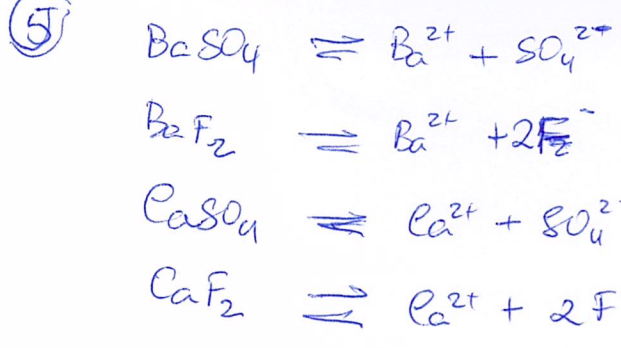 5J
BaSO₄ ⇌ Ba²⁺ + SO₄²⁻
BaF₂ ⇌ Ba²⁺ + 2F⁻
CaSO₄ ⇌ Ca²⁺ + SO₄²
CaF₂ ⇌ Ca²⁺ + 2F